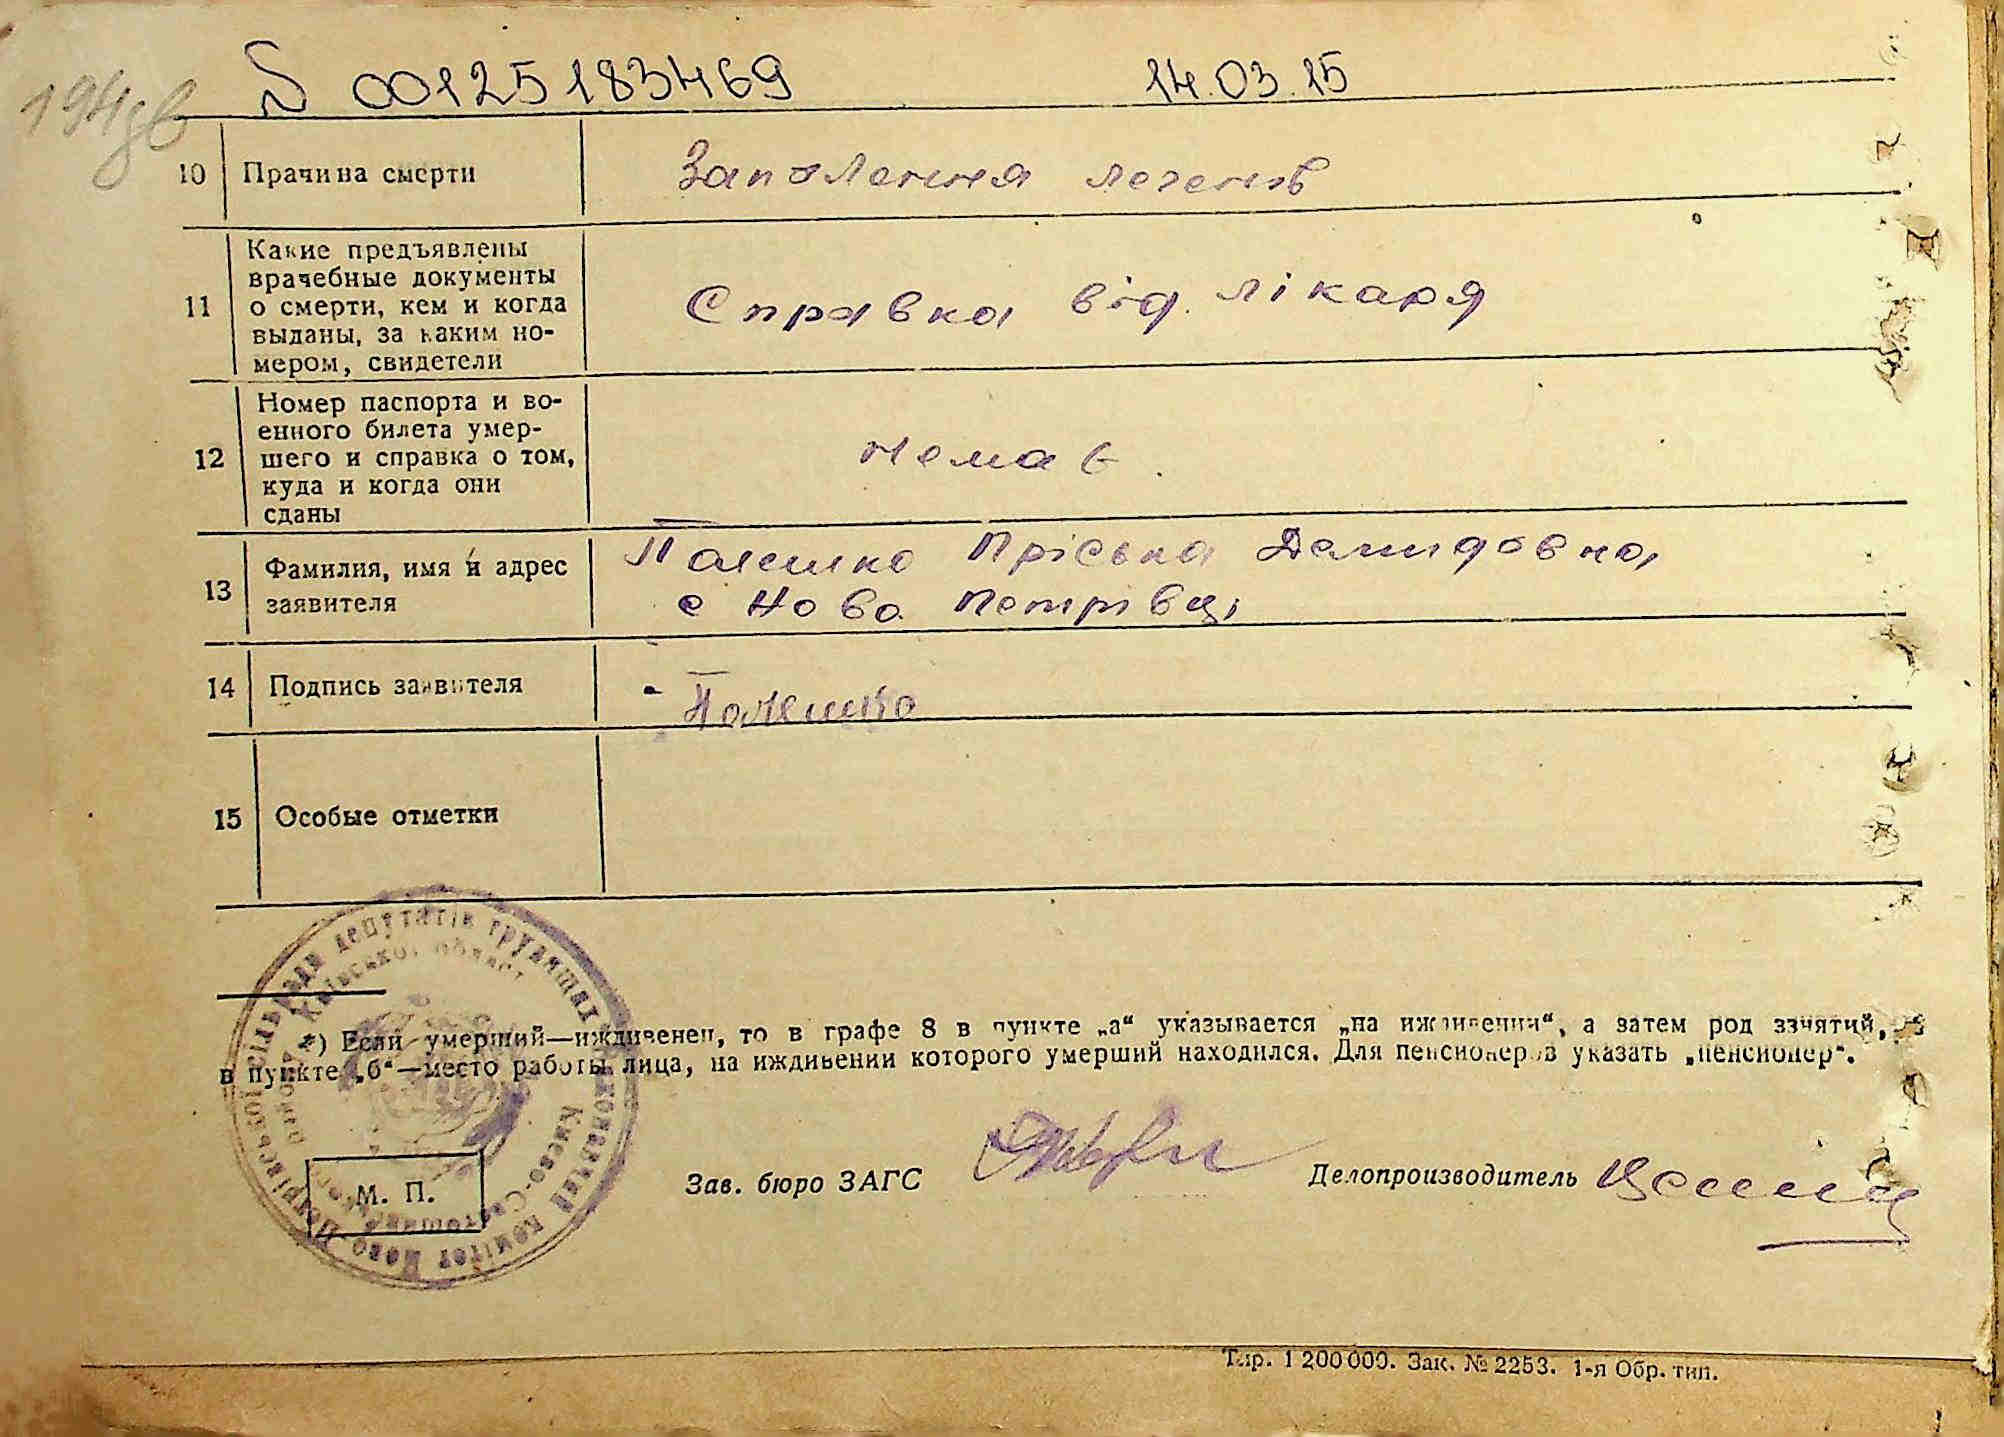 194зв
00125183469 14.03.15
10 Причина смерти Запалення легенів
11 Какие предъявлены
врачебные документы
о смерти, кем и когда
выданы, за каким но-
мером, свидетели
Справка від лікаря
12 Номер паспорта и во-
енного билета умер-
шего и справка о том,
куда и когда они
сданы
Немає
13 Фамилия, имя и адрес
заявителя
Палешко Пріська Демидовна
с Ново Петрівці
14 Подпись заявителя Палешко
15 Особые отметки
виконавчий комітет Ново-Петрівської сільради депутатів трудящих
Києво-Святошинського району Київської області
*) Если умерший—иждивенец, то в графе 8 в пункте „а“ указывается „на иждивении“, а затем род занятий, а
в пункте „б“—место работы лица, на иждивении которого умерший находился. Для пенсионеров указать „пенсионер“.
М. П.
Зав. бюро ЗАГС Делопроизводитель
Тир. 1 200 000. Зак. № 2253. 1-я Обр. тип.